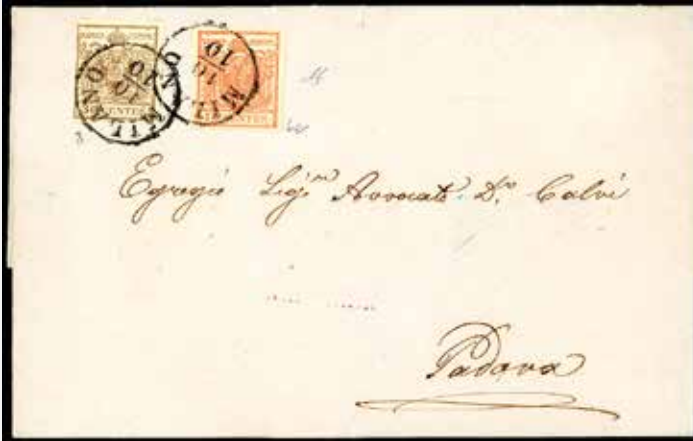 MILANO
10
10
MILANO
10
10
CENTES
CENTES
Egregio Sigre Avvocato Dr Calvi
Padova